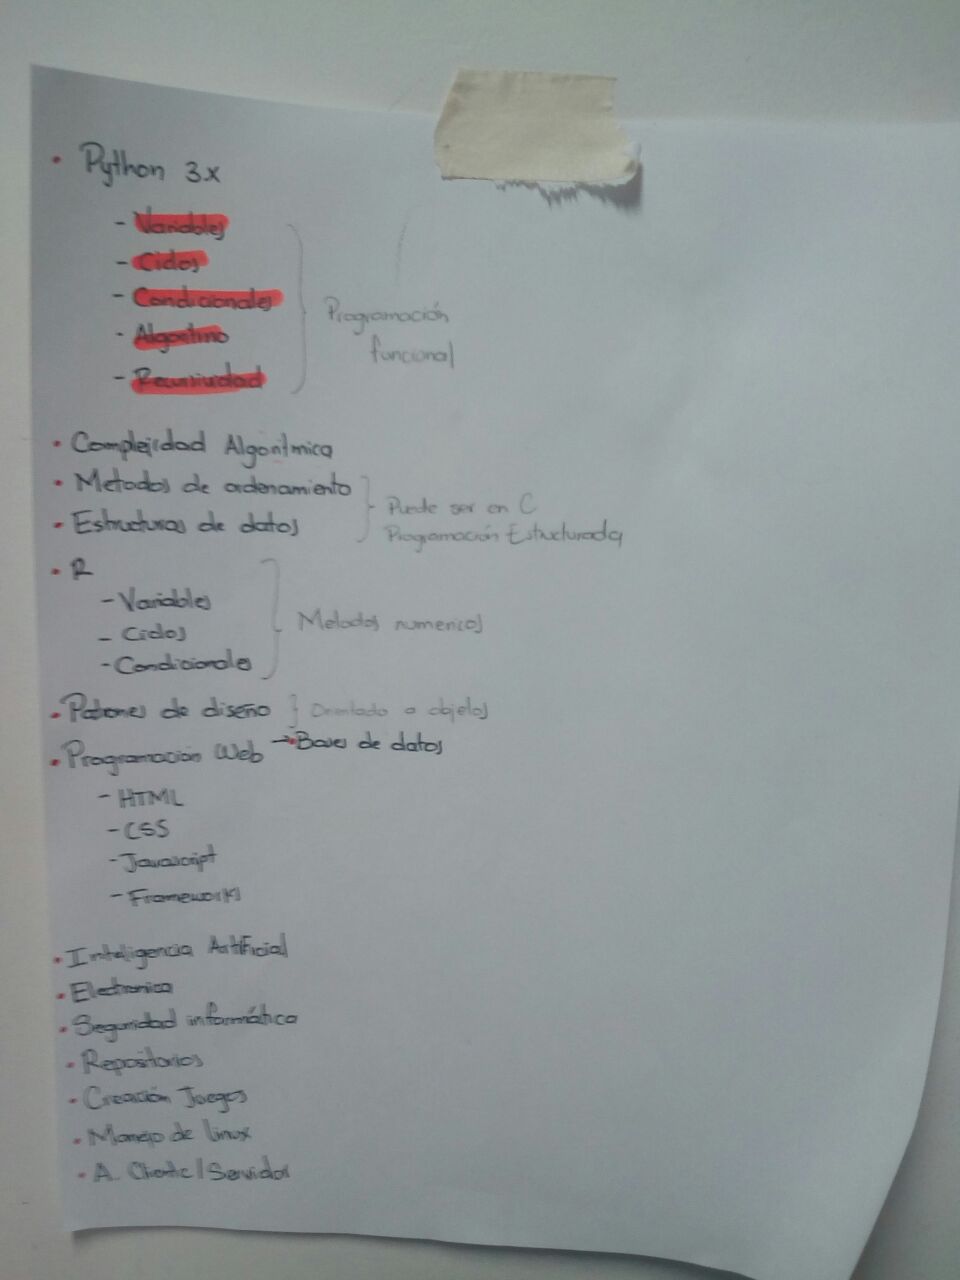 • Python 3.x
- Variables
- Ciclos
- Condicionales
- Algoritmo
- Recursividad
Programación
funcional
• Complejidad Algoritmica
• Metodos de ordenamiento
• Estructuras de datos
Puede ser en C
Programación Estructurada
• R
- Variables
- Ciclos
- Condicionales
Metodos numericos
• Patrones de diseño } Orientado a objetos
• Programación Web → • Bases de datos
- HTML
- CSS
- Javascript
- Frameworks
• Inteligencia Artificial
• Electronica
• Seguridad informática
• Repositorios
• Creación Juegos
• Manejo de linux
• A. Cliente/Servidor